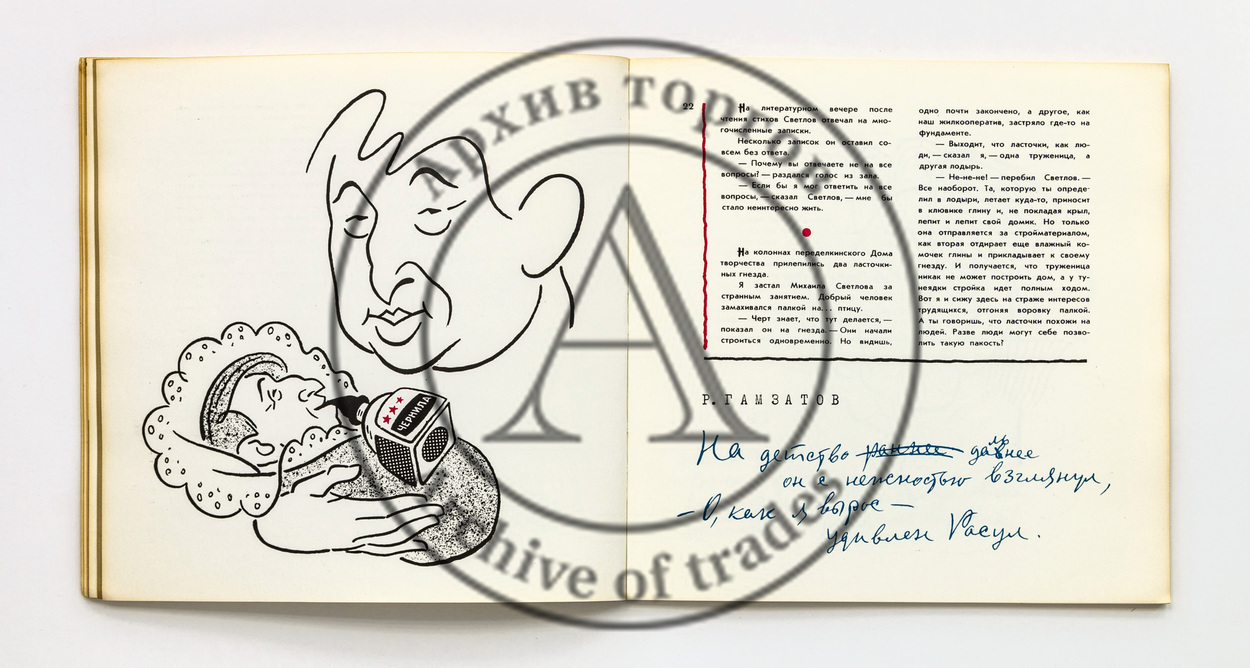 Архив торговли
ЧЕРНИЛА
22
На литературном вечере после
чтения стихов Светлов отвечал на мно-
гочисленные записки.
Несколько записок он оставил со-
всем без ответа.
— Почему вы отвечаете не на все
вопросы? — раздался голос из зала.
— Если бы я мог ответить на все
вопросы, — сказал Светлов, — мне бы
стало неинтересно жить.
На колоннах переделкинского Дома
творчества прилепились два ласточки-
ных гнезда.
Я застал Михаила Светлова за
странным занятием. Добрый человек
замахивался палкой на... птицу.
— Черт знает, что тут делается, —
показал он на гнезда. — Они начали
строиться одновременно. Но видишь,
одно почти закончено, а другое, как
наш жилкооператив, застряло где-то на
фундаменте.
— Выходит, что ласточки, как лю-
ди, — сказал я, — одна труженица, а
другая лодырь.
— Не-не-не! — перебил Светлов. —
Все наоборот. Та, которую ты опреде-
лил в лодыри, летает куда-то, приносит
в клювике глину и, не покладая крыл,
лепит и лепит свой домик. Но только
она отправляется за стройматериалом,
как вторая отдирает еще влажный ко-
мочек глины и прикладывает к своему
гнезду. И получается, что труженица
никак не может построить дом, а у ту-
неядки стройка идет полным ходом.
Вот я и сижу здесь на страже интересов
трудящихся, отгоняя воровку палкой.
А ты говоришь, что ласточки похожи на
людей. Разве люди могут себе позво-
лить такую пакость?
Р. ГАМЗАТОВ
На детство раннее дальнее
он с нежностью взглянул,
— О, как я вырос —
удивлен Расул.
Archive of trades